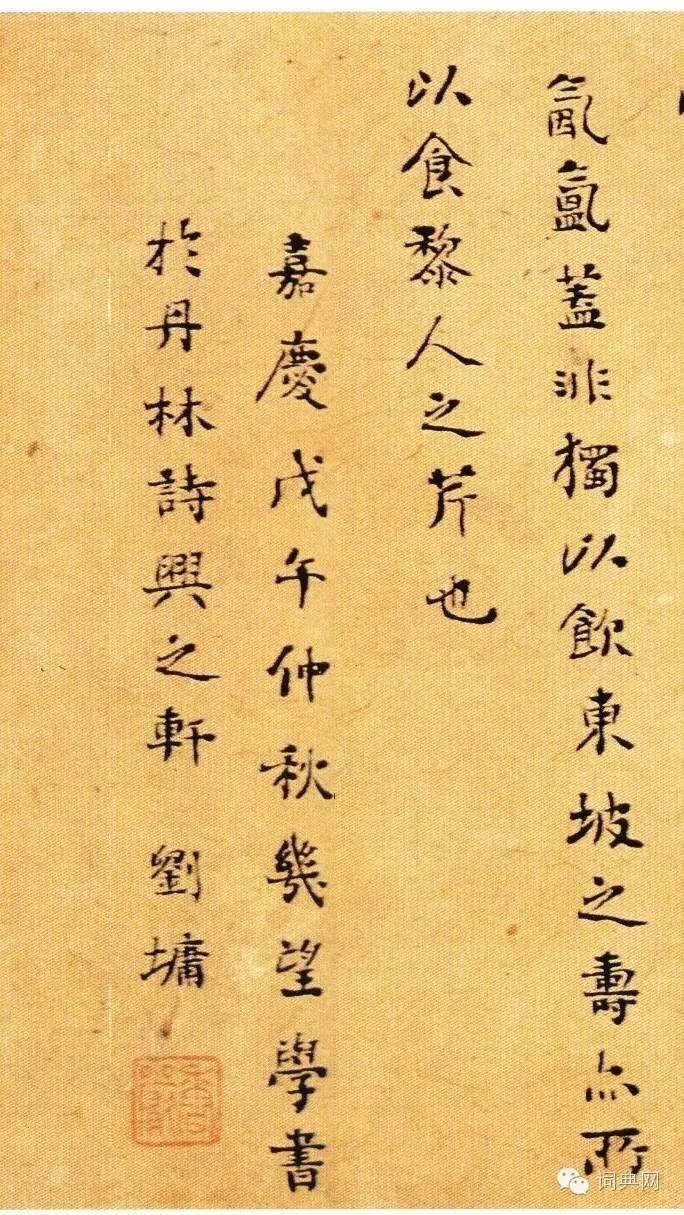 氤氳蓋非獨以飲東坡之壽亦所
以食黎人之芹也
嘉慶戊午仲秋幾望學書
於丹林詩興之軒 劉墉
词典网